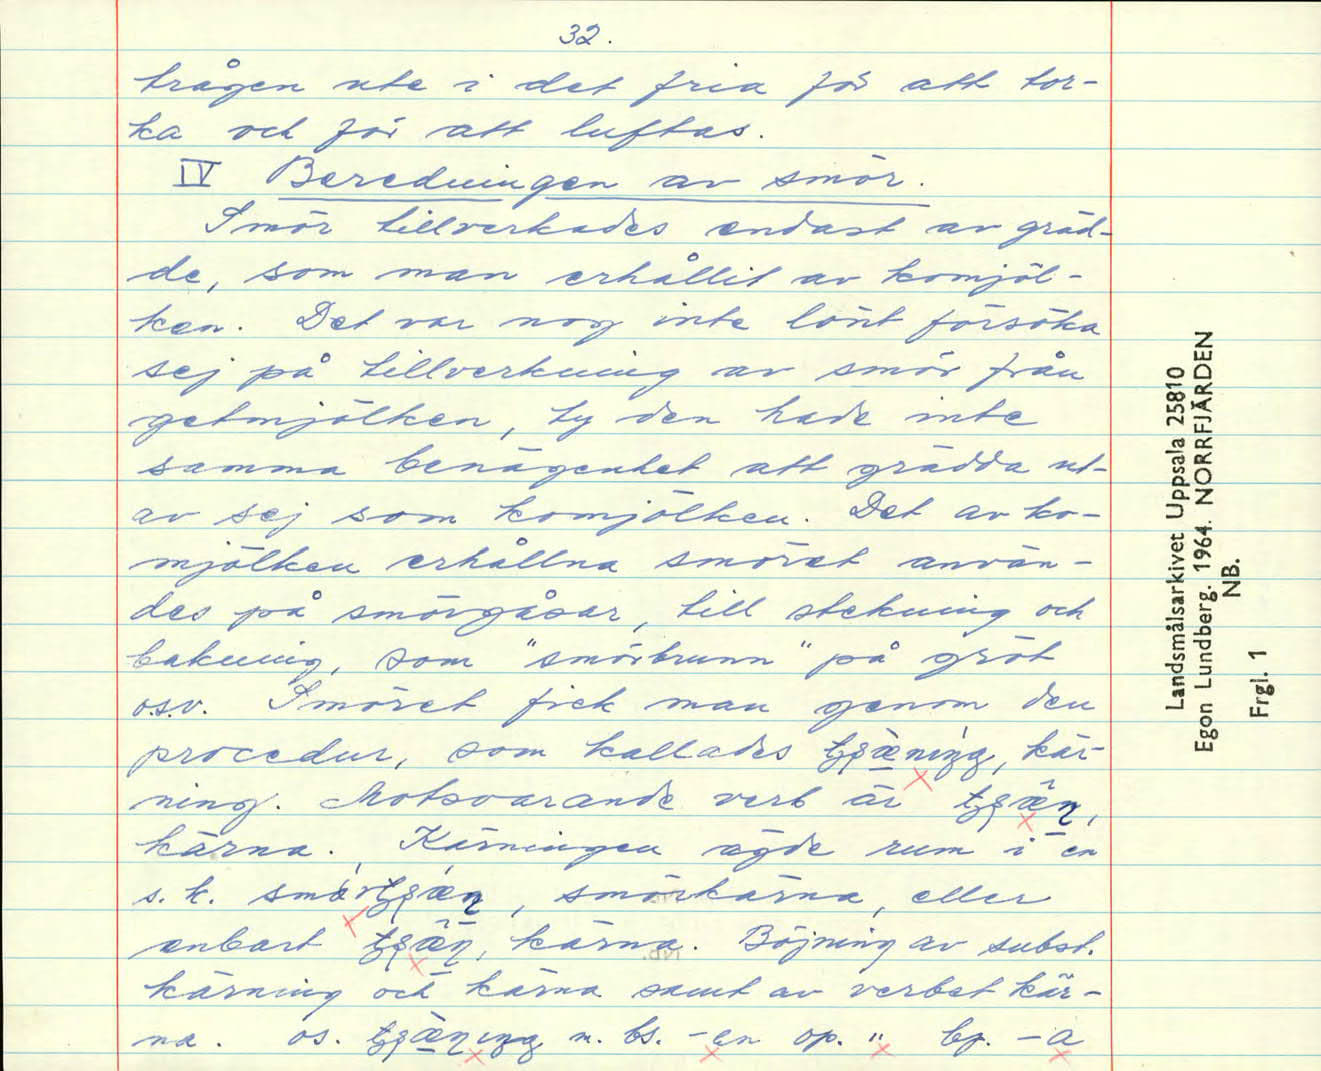 32.
trågen ute i det fria för att tor-
ka och för att luftas.
IV Beredningen av smör.
Smör tillverkades endast av gräd-
de, som man erhållit av komjöl-
ken. Det var nog inte lönt försöka
sej på tillverkning av smör från
getmjölken, ty den hade inte
samma benägenhet att grädda ut-
av sej som komjölken. Det av ko-
mjölken erhållna smöret använ-
des på smörgåsar, till stekning och
bakning, som "smörbrunn" på gröt
o.s.v. Smöret fick man genom den
procedur, som kallades kär-
ning. Motsvarande verb är
kärna. Kärningen ägde rum i en
s.k. smörkärna, eller
enbart kärna. Böjning av subst.
kärning och kärna samt av verbet kär-
na. os. n. bs. -en op. " bp. -a
Landsmålsarkivet Uppsala 25810
Egon Lundberg. 1964. NORRFJÄRDEN
NB.
Frgl. 1